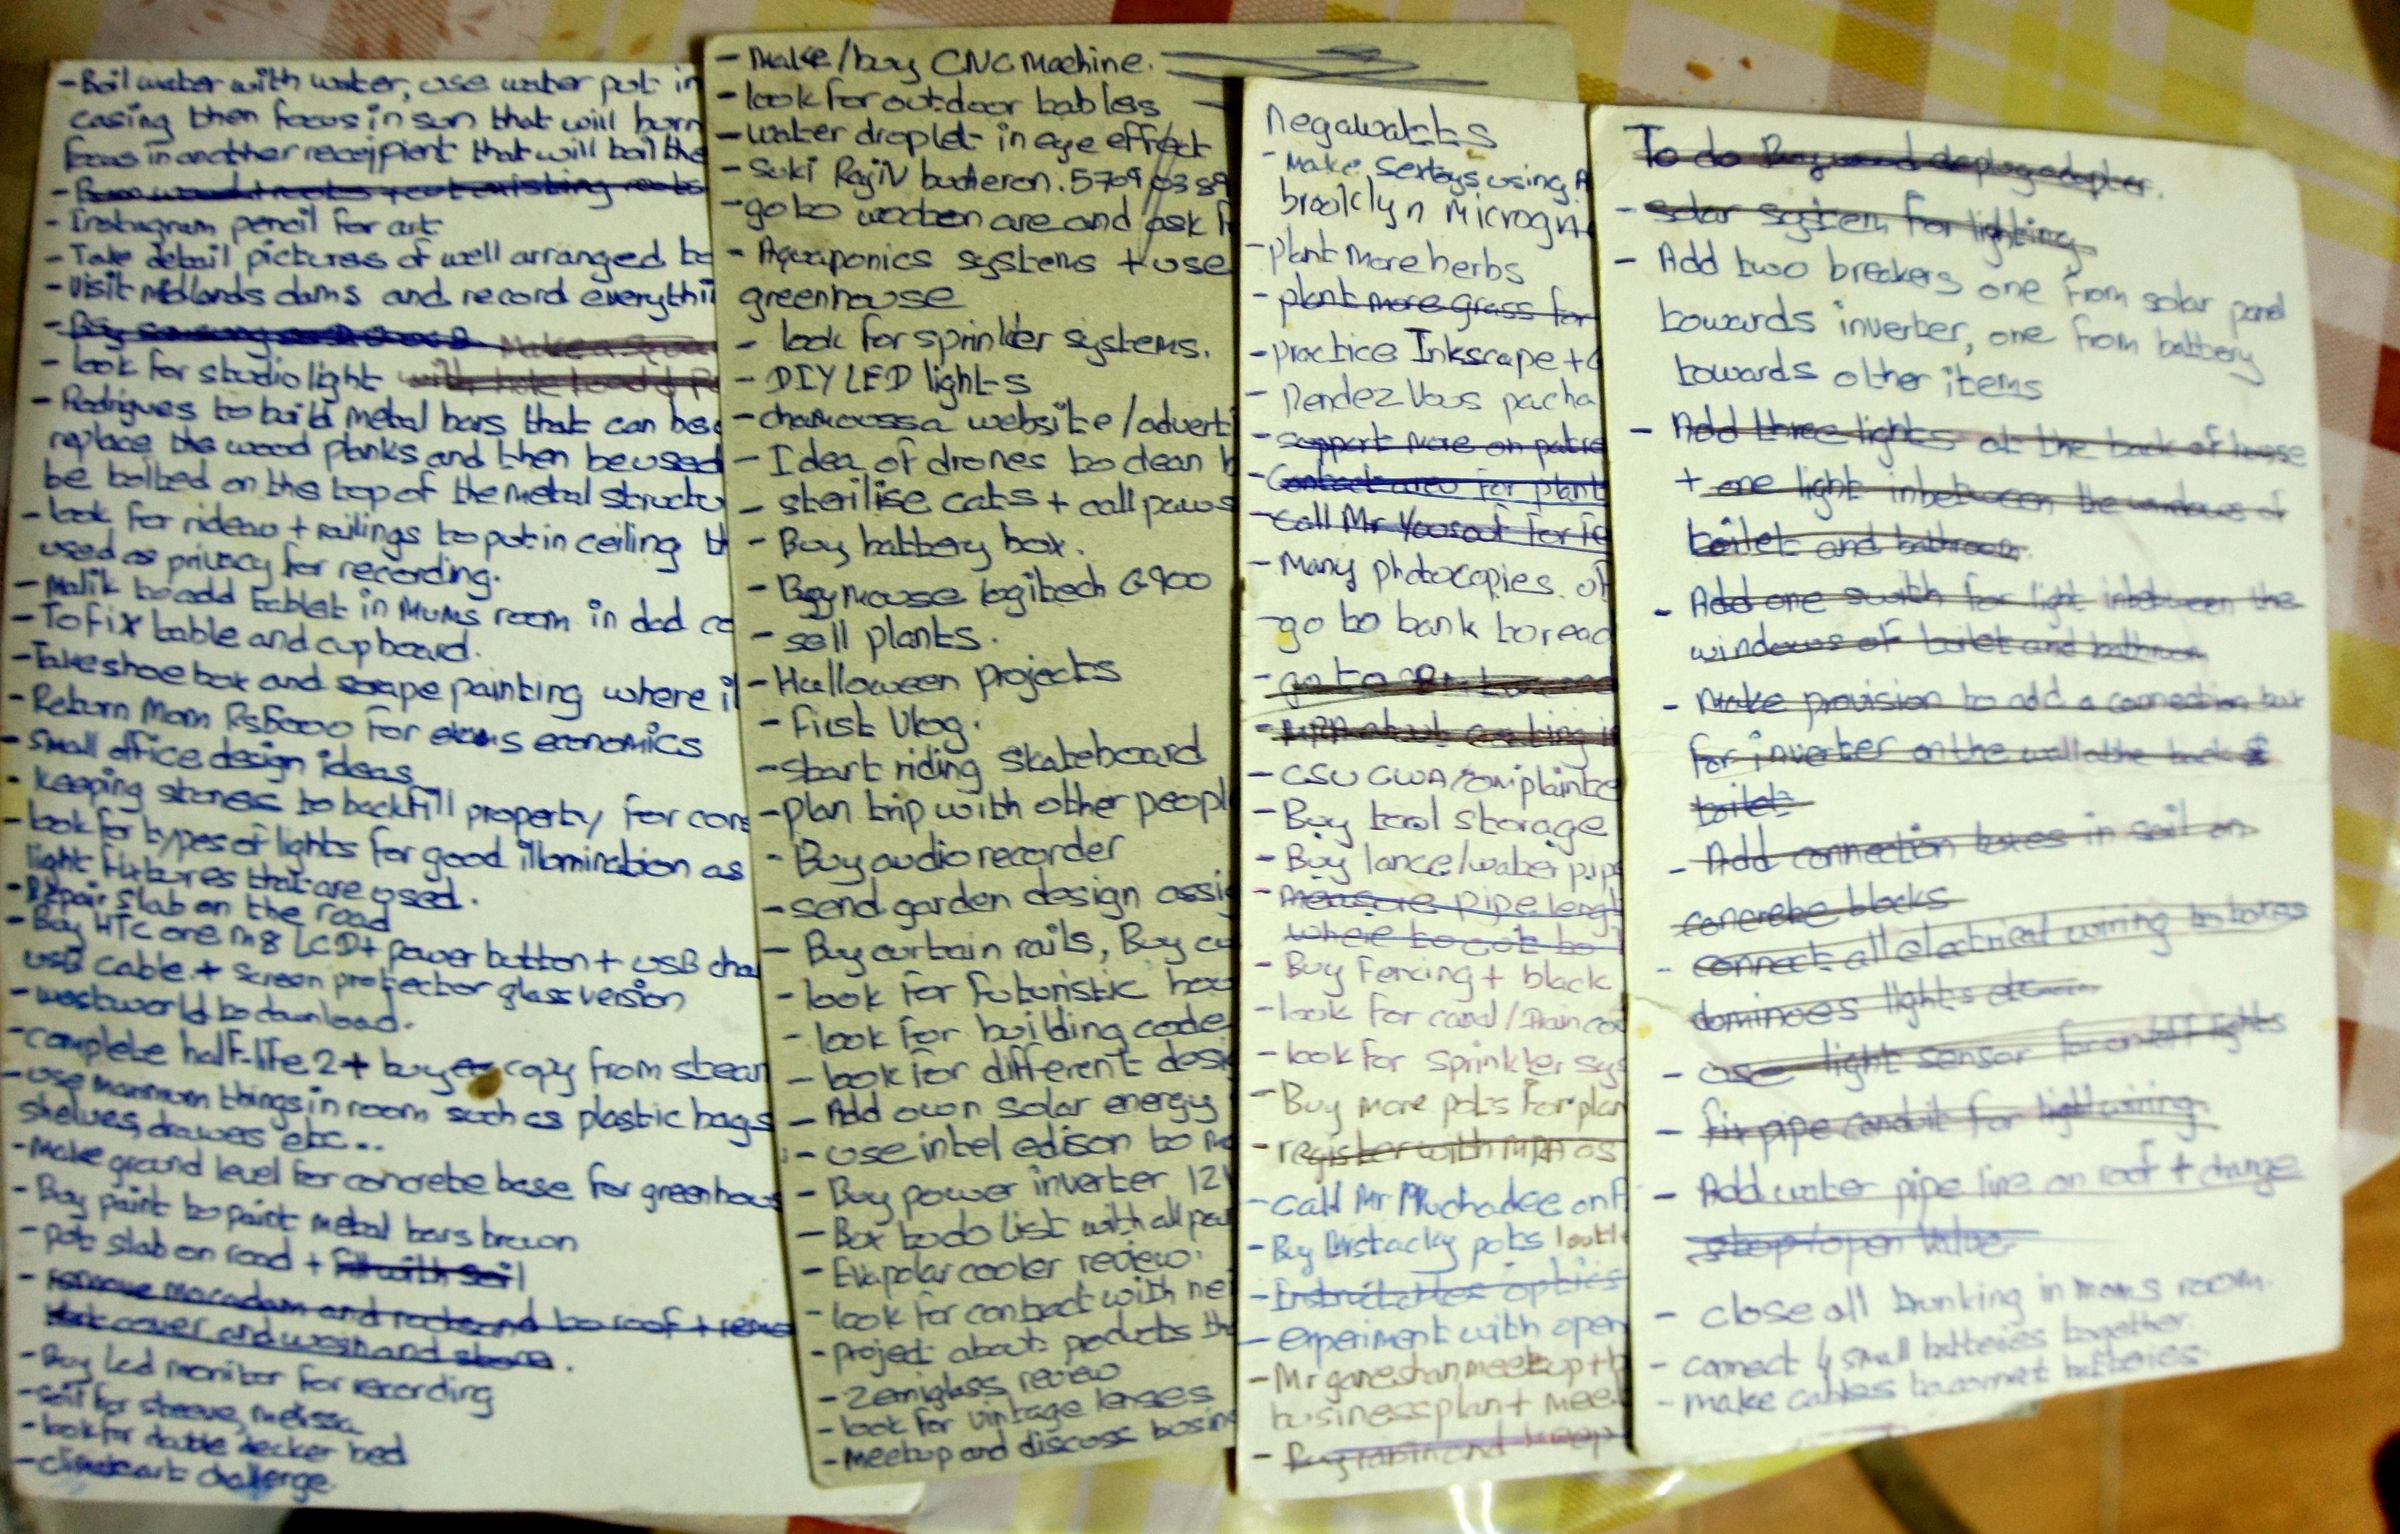 - Boil water with water, use water put in
casing then focus in sun that will burn
focus in another receipient that will boil the
- existing roots
- Instagram pencil for art
- Take detail pictures of well arranged
- Visit midlands dams and record everythi
- Make a
- look for studio light with hole
- Rodrigues to build metal bars that can be
replace the wood planks and then be used
be bolted on the top of the metal structu
- look for rideau + railings to put in ceiling
used as privacy for recording.
- Malik to add tablet in Mums room in dad
- To fix table and cupboard.
- Take shoe box and scrape painting where i
- Return Mom Rs6000 for exams economics
- Small office design ideas
- Keeping stones to backfill property for cons
- look for types of lights for good illumination as
light fixtures that are used.
- Repair slab on the road
- Buy HTC one m8 LCD + power button + USB cha
USB cable + screen protector glass version
- westworld to download.
- complete half-life 2 + buy copy from steam
- use maximum things in room such as plastic bags
shelves, drawers etc...
- Make ground level for concrete base for greenhous
- Buy paint to paint metal bars brown
- put slab on road + fill with soil
- remove macadam and rocks and to roof +
cover and wash and store.
- Buy led monitor for recording
- soil for steeve, melissa
- look for double decker bed
- art challenge.
- Make/buy CNC Machine.
- look for outdoor tables
- water droplet in eye effect
- Suki Rajiv
- go to and ask
- Aquaponics systems + use
greenhouse
- look for sprinkler systems.
- DIY LED lights
- chamoussa website/advert
- Idea of drones to clean
- sterilise cats + call paws
- Buy battery box.
- Buy mouse logitech G900
- sell plants.
- Halloween projects
- First Vlog.
- start riding skateboard
- plan trip with other peopl
- Buy audio recorder
- send garden design assig
- Buy curtain rails, Buy cu
- look for futuristic hou
- look for building code
- look for different desi
- Add own solar energy
- use intel edison to
- Buy power inverter 12V
- Box to do list with all
- Evapolar cooler review.
- look for contact with
- project about products th
- Zemiglass review
- look for vintage lenses
- Meetup and discuss busin
negawatts
- Make using
brooklyn Microgri
- plant more herbs
- plant more grass for
- practice Inkscape +
- Rendez Vous pacha
- support more on patre
- Contact for plant
- Call Mr Yousouf for
- Many photocopies of
- go to bank to read
- go to
- MRA about
- CSU CWA complaint
- Buy tool storage
- Buy lance/water pipe
- Measure pipe lengt
where to cut to
- Buy Fencing + black
- look for canal/Drain
- look for sprinkler sys
- Buy more pots for plan
- register with MRA as
- call Mr on
- Buy stacky pots
- Instructables optics
- experiment with open
- Mr ganeshan meetup +
business plan + meet
- Buy and
To do Buy and adapter.
- solar system for lighting
- Add two breakers one from solar panel
towards inverter, one from battery
towards other items
- Add three lights at the back of house
+ one light inbetween the windows of
toilet and bathroom.
- Add one switch for light inbetween the
windows of toilet and bathroom
- Make provision to add a connection
for inverter on the wall at the back
toilet
- Add connection boxes in soil on
concrete blocks
- connect all electrical wiring to boxes
dominoes lights
- use light sensor for on/off lights
- fix pipe conduit for light wiring
- Add water pipe line on roof + change
stop/open valve
- close all trunking in moms room.
- connect 4 small batteries together.
- make cables to connect batteries.